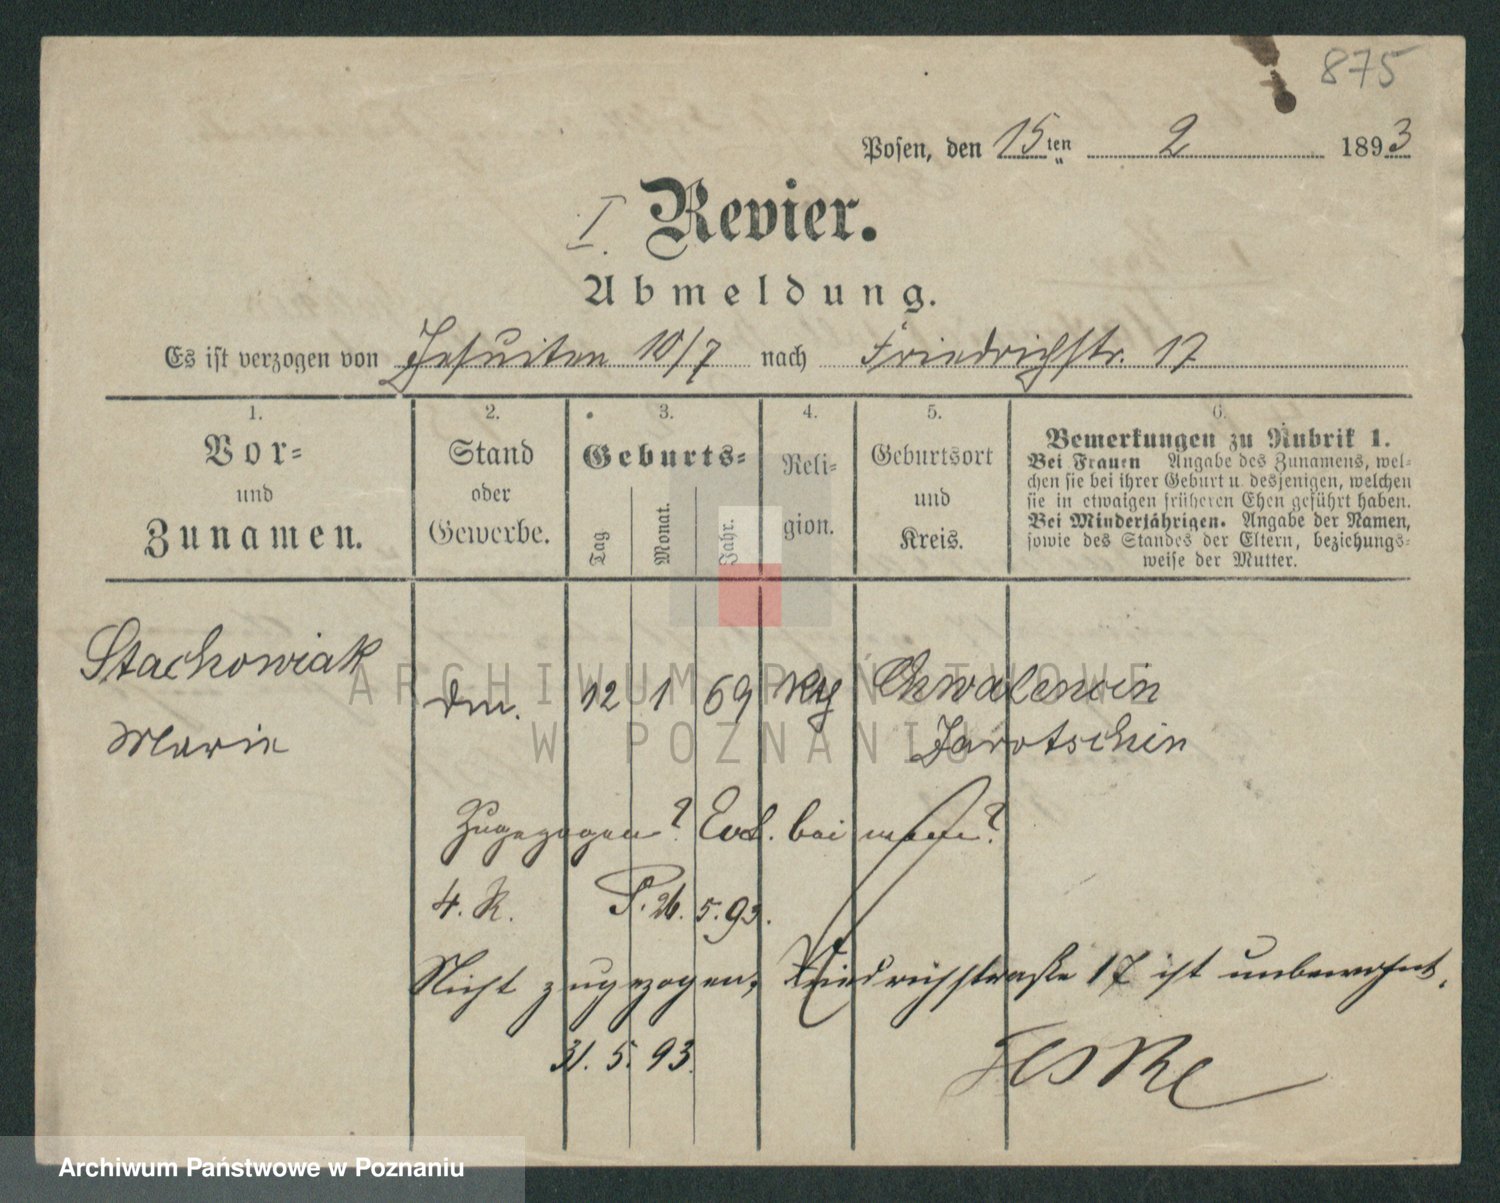 875
Posen, den 15ten 2 1893
I. Revier.
Abmeldung.
Es ist verzogen von Jesuiten 10/7 nach Friedrichstr. 17
1.
Vor-
und
Zunamen.
2.
Stand
oder
Gewerbe.
3.
Geburts-
Tag
Monat.
Jahr.
4.
Reli-
gion.
5.
Geburtsort
und
Kreis.
6.
Bemerkungen zu Rubrik 1.
Bei Frauen Angabe des Zunamens, wel-
chen sie bei ihrer Geburt u. desjenigen, welchen
sie in etwaigen früheren Ehen geführt haben.
Bei Minderjährigen. Angabe der Namen,
sowie des Standes der Eltern, beziehungs-
weise der Mutter.
Stachowiak
Marie
Dm. 12 1 69
Jarotschin
Zugezogen? bei wem?
4. R. P. 26. 5. 93.
Nicht zugezogen, Friedrichstraße 17 ist unbewohnt.
31. 5. 93.
Jeske
ARCHIWUM PAŃSTWOWE
W POZNANIU
Archiwum Państwowe w Poznaniu